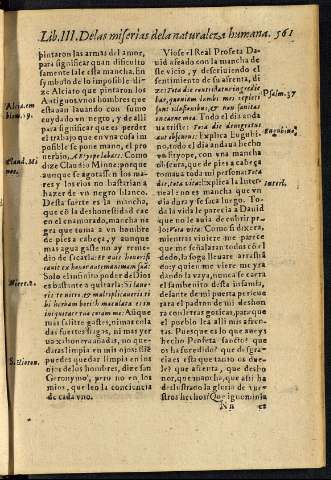 Lib. III. De las miserias de la naturaleza humana. 561
pintaron las armas del amor,
para significar quan dificulto
samente sale esta mancha. En
symbolo de lo impossible di-
ze Alciato que pintaron los
Antiguos, vnos hombres que
estauan lauando con sumo
cuydado vn negro, y de alli
para significar que es perder
el trabajo que en vna cosa im
possible se pone mano, el pro
uerbio,
dize Claudio Minoe: porque
aunque se agotassen los ma-
res y los rios no bastirian a
hazer de vn negro blanco.
Desta suerte es la mancha,
que cō la deshonestidad cae
en el enamorado, mancha ne
gra que toma a vn hombre
de pies a cabeça, y aunque
mas agua gaste no ay reme-
dio de sacarla:
Solo el infinito poder de Dios
es bastante a quitarla: Si laue-
ris te nitro & multiplicaueris ti
bi herbam borith maculata es in
iniquitate tua coram me: Auque
mas salitre gastes, ni mas cola
das fuertes hagas, ni mas yer
uas xabonera añadas, no que-
daras limpia en mis ojos: biē
puedes quedar limpia en los
ojos de los hombres, dize san
Geronymo, pero no en los
mios, que leo la conciencia
de cada vno.
Alcia. em
blem. 59.
Claud. Mi
noes.
Hiere. 2.
S. Hieron.
Viose el Real Profeta Da-
uid afeado con la mancha de
ste vicio, y descriuiendo el
sentimiento de su afrenta, di
ze: Tota die contristatus ingredie
bar, quoniam lumbi mei repleti
sunt illusionibus, & non est sanitas
in carne mea. Todo el dia anda
ua triste: Tota die denigratus
ambulabam. Explica Eugubi-
no, todo el dia andaua hecho
vn Etyope, con vna mancha
obscura, que de pies a cabeça
tomaua toda mi persona: Tota
die, tota vita: Explica la Inter-
lineal: no es mancha que vn
dia dura y se saca luego. To-
da la vida le parecia a Dauid
que no le auia de cubrir pe-
lo: Tota vita. Como si dixera,
mientras viuiere me parece
que me señalaran todos cō el
dedo, la soga lleuare arrastrā
do; y quien me viere me yra
dando la vaya, nunca se caera
el sambenito desta infamia,
delante de mi puerta pericue
ra el padron de mi deshonra
con letras goticas, para que
el pueblo lea alli mis afren-
tas. Pues que es lo que aueys
hecho Profeta sancto? que
os ha sucedido? que desgra-
cia es esta que tanto os due-
le? que afrenta, que desho-
nor, que mancha, assi ha
deslustrado la gloria de vue-
stros hechos? Que ignominia
Nn es
Psalm. 37
Eugubino.